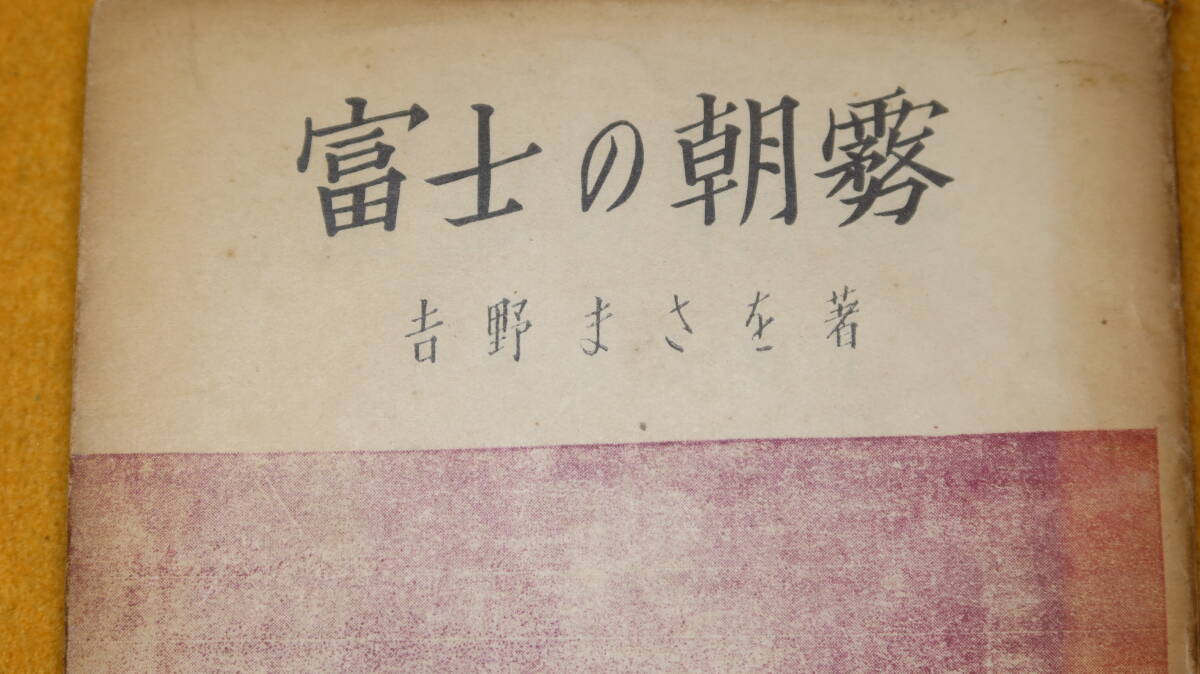 富士の朝霧
吉野まさを著